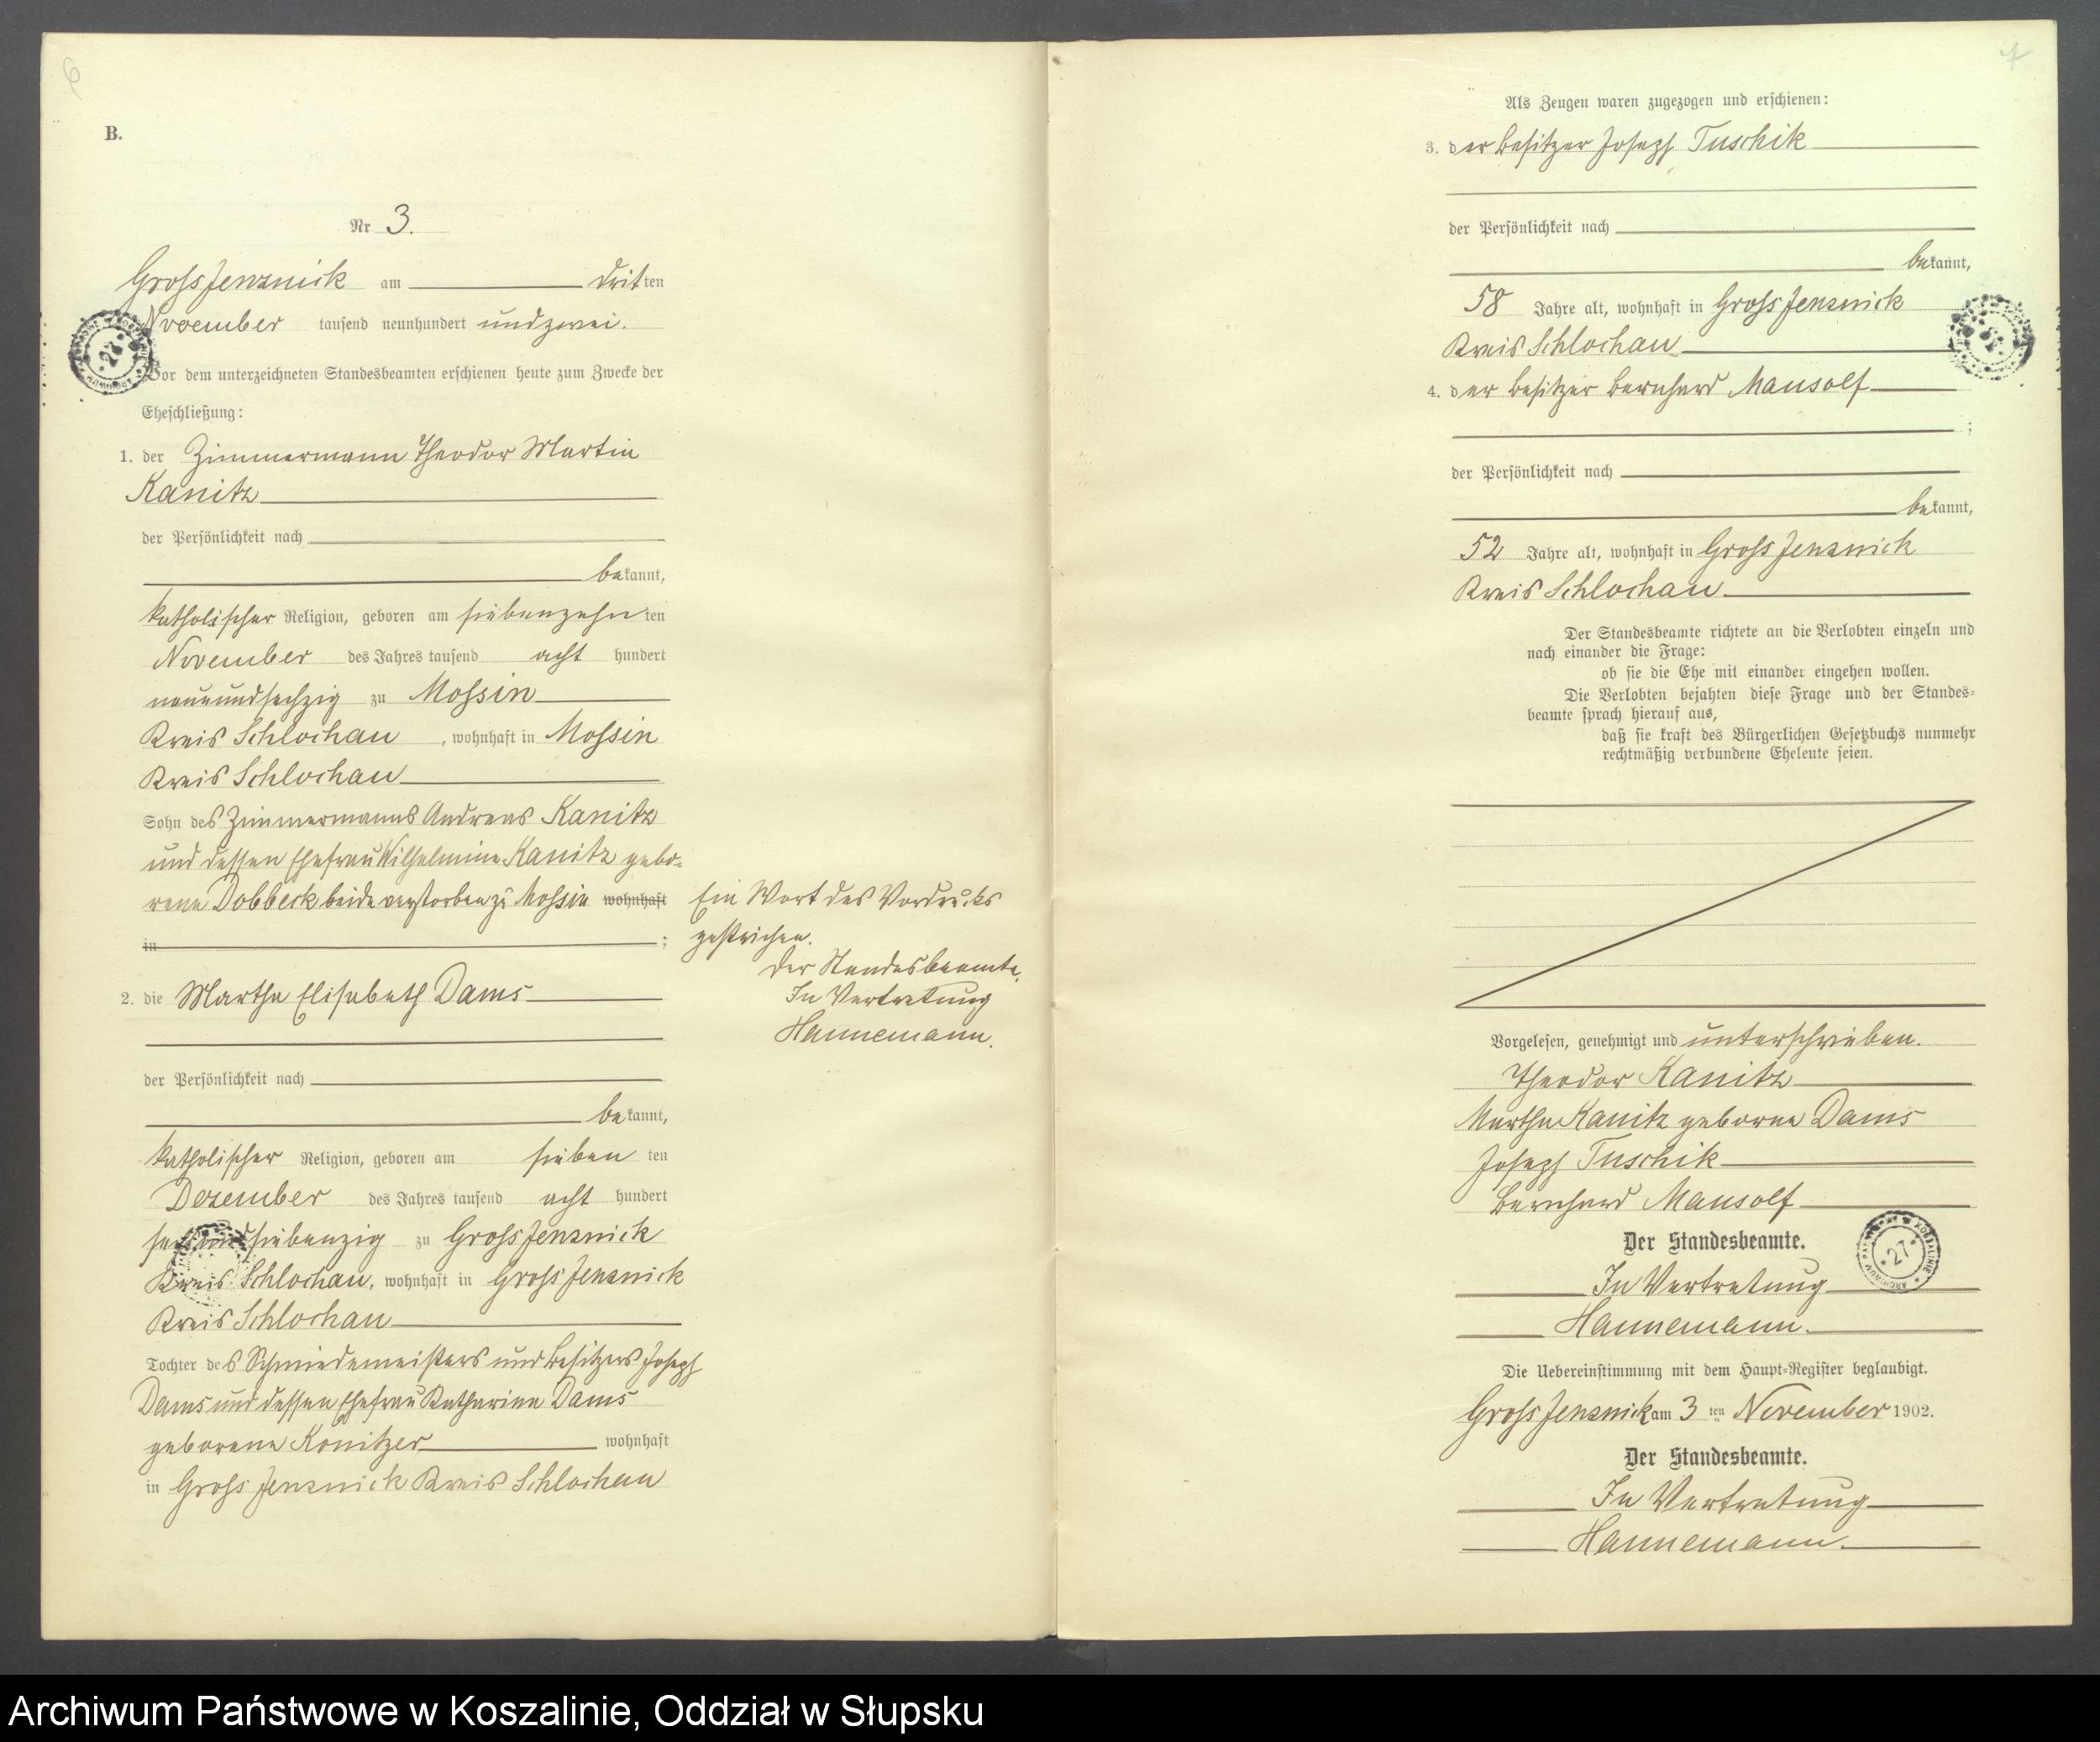 6
B.
Nr 3.
Gross Jenznick am dritten
November tausend neunhundert und zwei.
Vor dem unterzeichneten Standesbeamten erschienen heute zum Zwecke der
Eheschließung:
1. der Zimmermann Theodor Martin
Kanitz
der Persönlichkeit nach
bekannt,
katholischer Religion, geboren am siebenzehnten
November des Jahres tausend acht hundert
neunundsechzig zu Mossin
Kreis Schlochau, wohnhaft in Mossin
Kreis Schlochau
Sohn des Zimmermanns Andreas Kanitz
und dessen Ehefrau Wilhelmine Kanitz gebo-
rene Dobbeck beide verstorben zu Mossin wohnhaft
in ;
Ein Wort des Vordrucks
gestrichen.
Der Standesbeamte.
In Vertretung
Hannemann.
2. die Martha Elisabeth Dams
der Persönlichkeit nach
bekannt,
katholischer Religion, geboren am sieben ten
Dezember des Jahres tausend acht hundert
sechsundsiebenzig zu Gross Jenznick
Kreis Schlochau, wohnhaft in Gross Jenznick
Kreis Schlochau
Tochter des Schmiedemeisters und Besitzers Joseph
Dams und dessen Ehefrau Katharina Dams
geborene Konitzer wohnhaft
in Gross Jenznick Kreis Schlochau
7
Als Zeugen waren zugezogen und erschienen:
3. der Besitzer Joseph Tuschik
der Persönlichkeit nach
bekannt,
58 Jahre alt, wohnhaft in Gross Jenznick
Kreis Schlochau
4. der Besitzer Bernhard Mansolf
;
der Persönlichkeit nach
bekannt,
52 Jahre alt, wohnhaft in Gross Jenznick
Kreis Schlochau
Der Standesbeamte richtete an die Verlobten einzeln und
nach einander die Frage:
ob sie die Ehe mit einander eingehen wollen.
Die Verlobten bejahten diese Frage und der Standes-
beamte sprach hierauf aus,
daß sie kraft des Bürgerlichen Gesetzbuchs nunmehr
rechtmäßig verbundene Eheleute seien.
Vorgelesen, genehmigt und unterschrieben.
Theodor Kanitz
Martha Kanitz geborne Dams
Joseph Tuschik
Bernhard Mansolf
Der Standesbeamte.
In Vertretung
Hannemann.
Die Uebereinstimmung mit dem Haupt-Register beglaubigt.
Gross Jenznick am 3 ten November 1902.
Der Standesbeamte.
In Vertretung
Hannemann.
Archiwum Państwowe w Koszalinie, Oddział w Słupsku